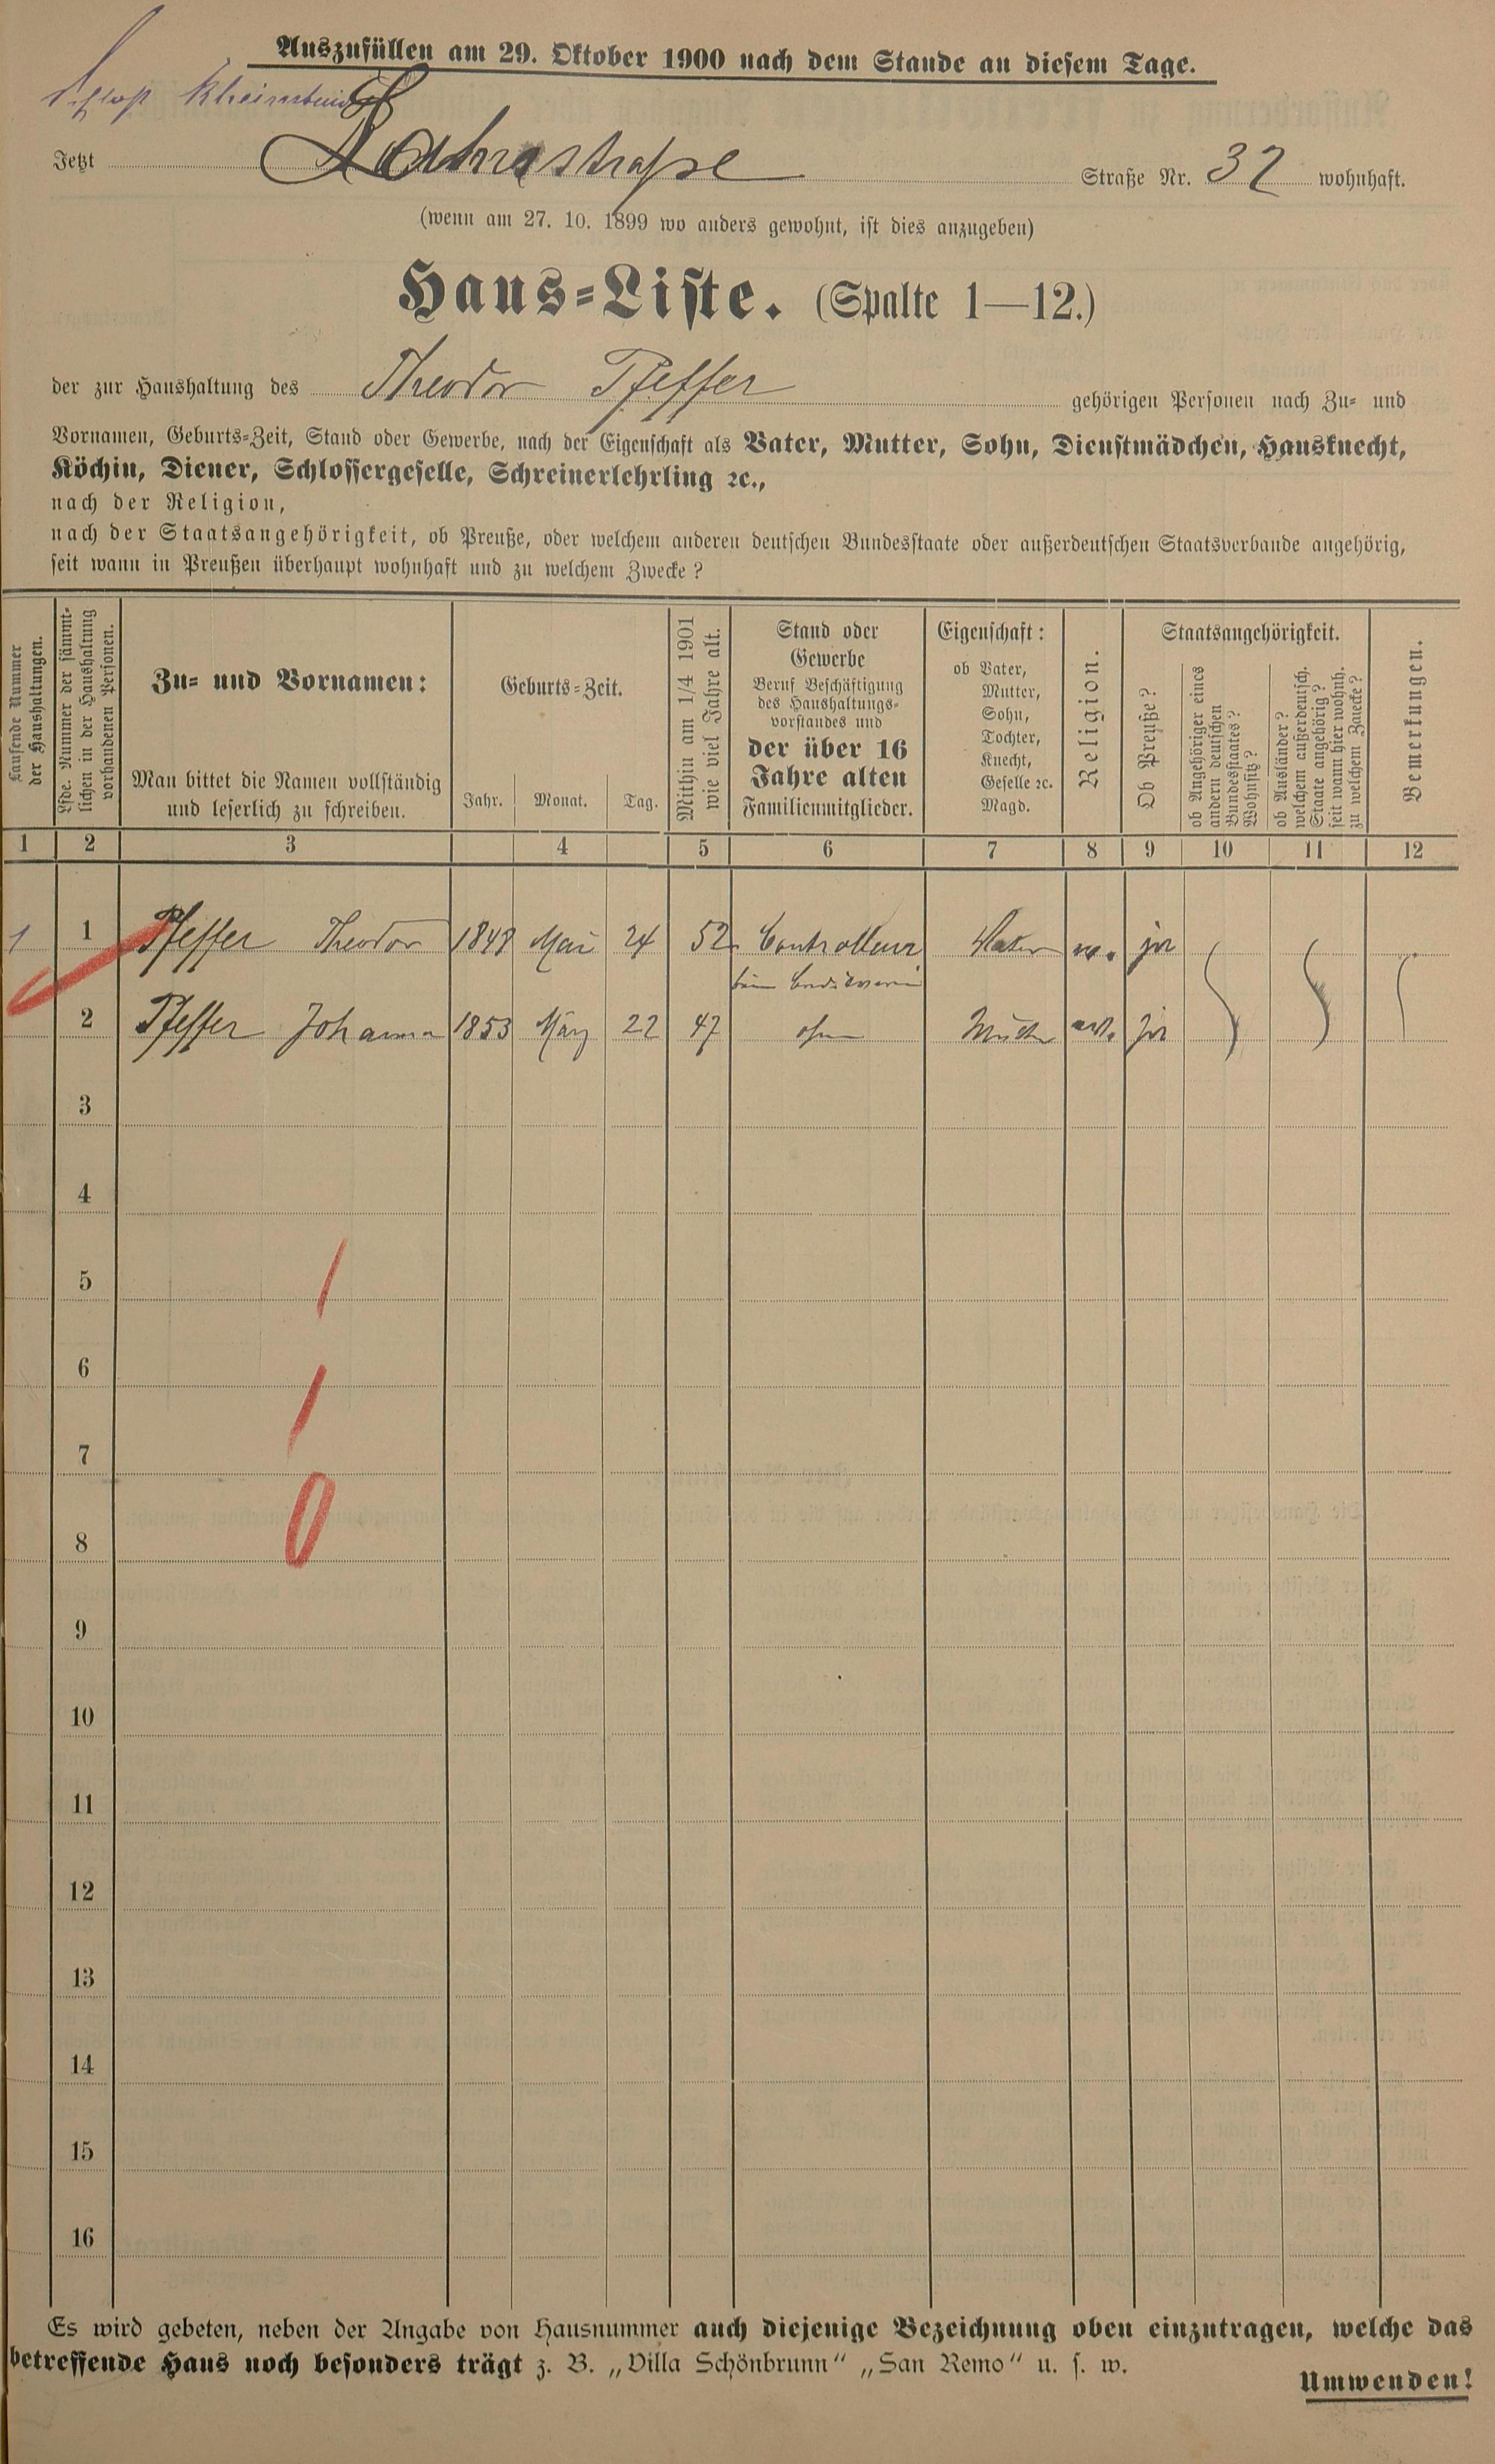 Auszufüllen am 29. Oktober 1900 nach dem Stande an diesem Tage.
Schloß Rheinstein
Jetzt Lahnstraße Straße Nr. 32 wohnhaft.
(wenn am 27. 10. 1899 wo anders gewohnt, ist dies anzugeben)
Haus=Liste. (Spalte 1—12.)
der zur Haushaltung des Theodor Pfeffer gehörigen Personen nach Zu= und
Vornamen, Geburts=Zeit, Stand oder Gewerbe, nach der Eigenschaft als Vater, Mutter, Sohn, Dienstmädchen, Hausknecht,
Köchin, Diener, Schlossergeselle, Schreinerlehrling ꝛc.,
nach der Religion,
nach der Staatsangehörigkeit, ob Preuße, oder welchem anderen deutschen Bundesstaate oder außerdeutschen Staatsverbande angehörig,
seit wann in Preußen überhaupt wohnhaft und zu welchem Zwecke?
Laufende Nummer
der Haushaltungen.
Lfde. Nummer der sämmt=
lichen in der Haushaltung
vorhandenen Personen.
Zu= und Vornamen:
Man bittet die Namen vollständig
und leserlich zu schreiben.
Geburts=Zeit.
Jahr. Monat. Tag.
Mithin am 1/4 1901
wie viel Jahre alt.
Stand oder
Gewerbe
Beruf Beschäftigung
des Haushaltungs=
vorstandes und
der über 16
Jahre alten
Familienmitglieder.
Eigenschaft:
ob Vater,
Mutter,
Sohn,
Tochter,
Knecht,
Geselle ꝛc.
Magd.
Religion.
Staatsangehörigkeit.
Ob Preuße?
ob Angehöriger eines
andern deutschen
Bundesstaates?
Wohnsitz?
ob Ausländer?
welchem außerdeutsch.
Staate angehörig?
seit wann hier wohnh.
zu welchem Zwecke?
Bemerkungen.
1 2 3 4 5 6 7 8 9 10 11 12
1 1 Pfeffer Theodor 1849 Mai 24 52 Controlleur Vater ev. ja
beim Creditverein
2 Pfeffer Johanna 1853 März 22 47 ohne Mutter ev. ja
3
4
5
6
7
8
9
10
11
12
13
14
15
16
Es wird gebeten, neben der Angabe von Hausnummer auch diejenige Bezeichnung oben einzutragen, welche das
betreffende Haus noch besonders trägt z. B. „Villa Schönbrunn“ „San Remo“ u. s. w.
Umwenden!